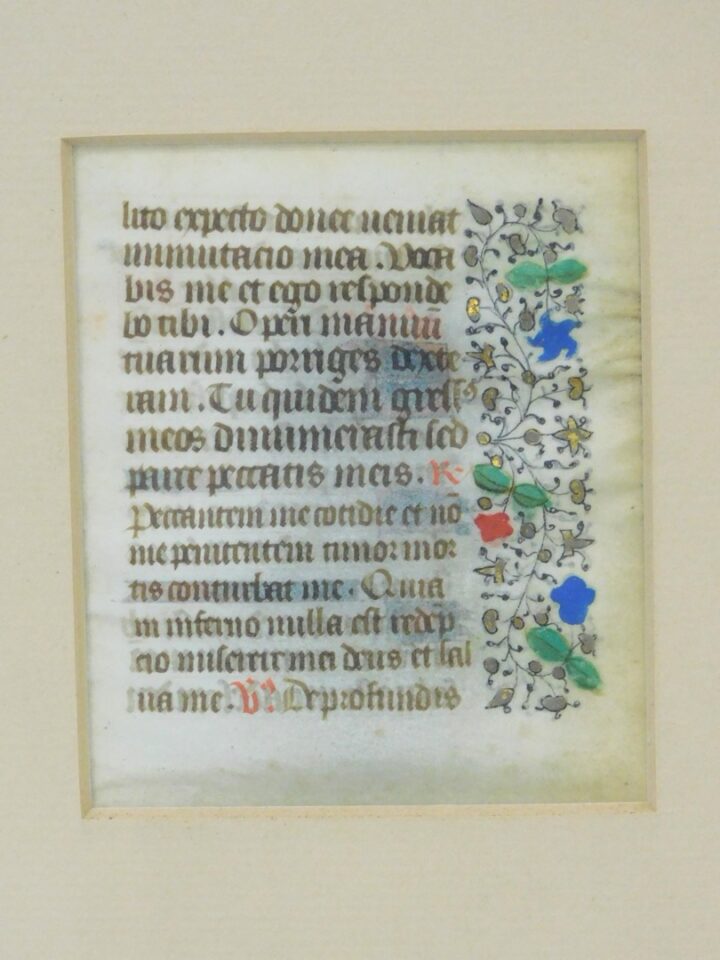 lito expecto donec ueniat
immutacio mea. Voca
bis me et ego responde
bo tibi. Operi manuū
tuarum porriges dexte
ram. Tu quidem gress⁹
meos dinumerasti sed
parce peccatis meis. R
Peccantem me cotidie et nō
me penitentem timor mor
tis conturbat me. Quia
in inferno nulla est redēp
cio miserere mei deus et sal
ua me. Vs De profundis